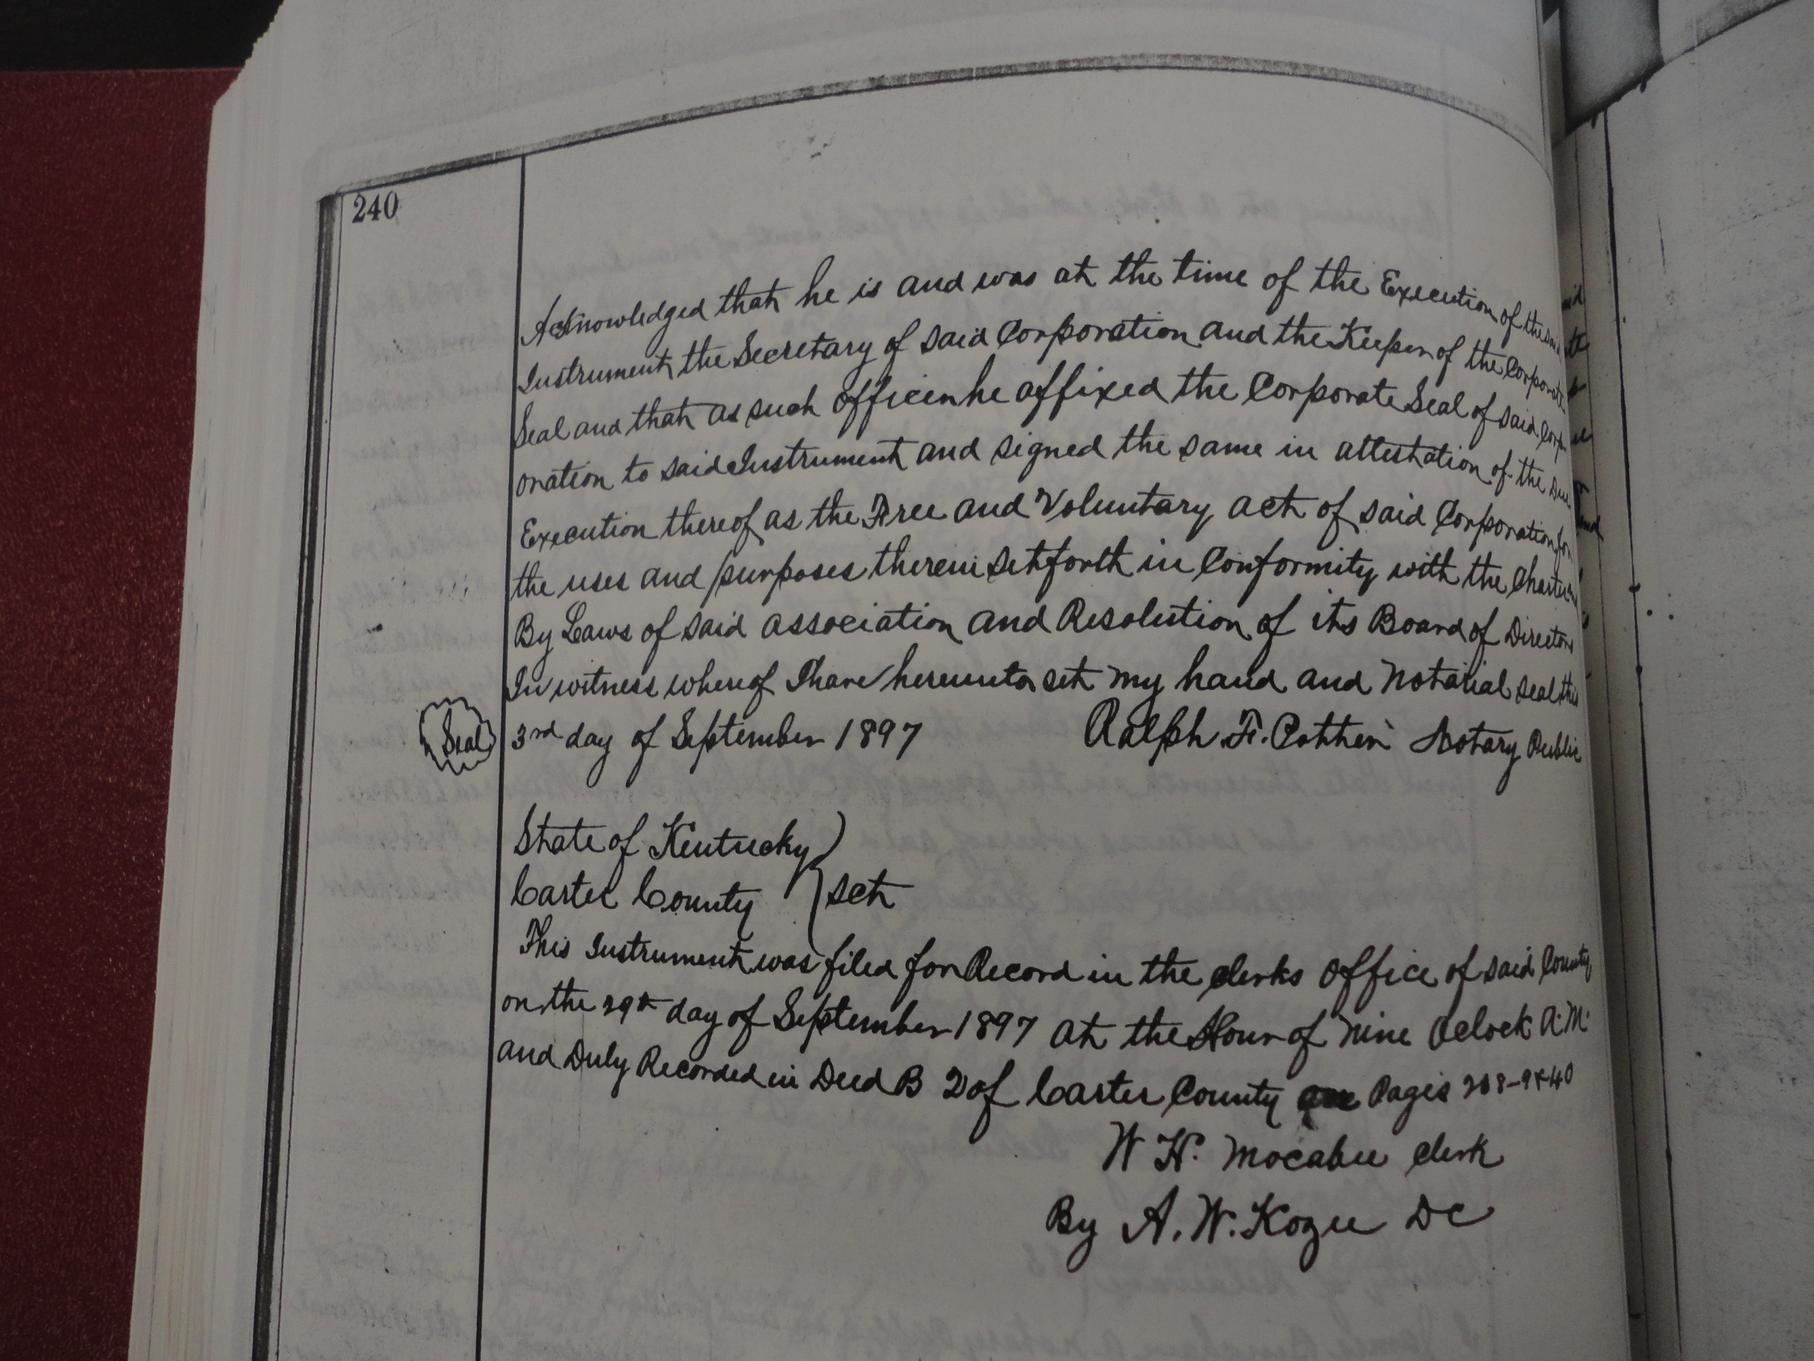 240
Acknowledged that he is and was at the time of the Execution of the said
Instrument the Secretary of said Corporation and the Keeper of the Corporate
Seal and that as such officer he affixed the Corporate Seal of said Corp
oration to said Instrument and signed the same in attestation of the due
Execution thereof as the Free and Voluntary act of said Corporation for
the uses and purposes therein set forth in Conformity with the Charter
By Laws of said association and Resolution of its Board of Directors
In witness whereof I have hereunto set my hand and Notarial seal this
Seal
3rd day of September 1897 Ralph F. Notary Public
State of Kentucky
Carter County } sct
This Instrument was filed for Record in the clerks office of said County
on the 29th day of September 1897 at the Hour of Nine Oclock A.M.
and Duly Recorded in Deed B 2 of Carter County Pages
W H. Mocabee Clerk
By A. W. Kozee DC